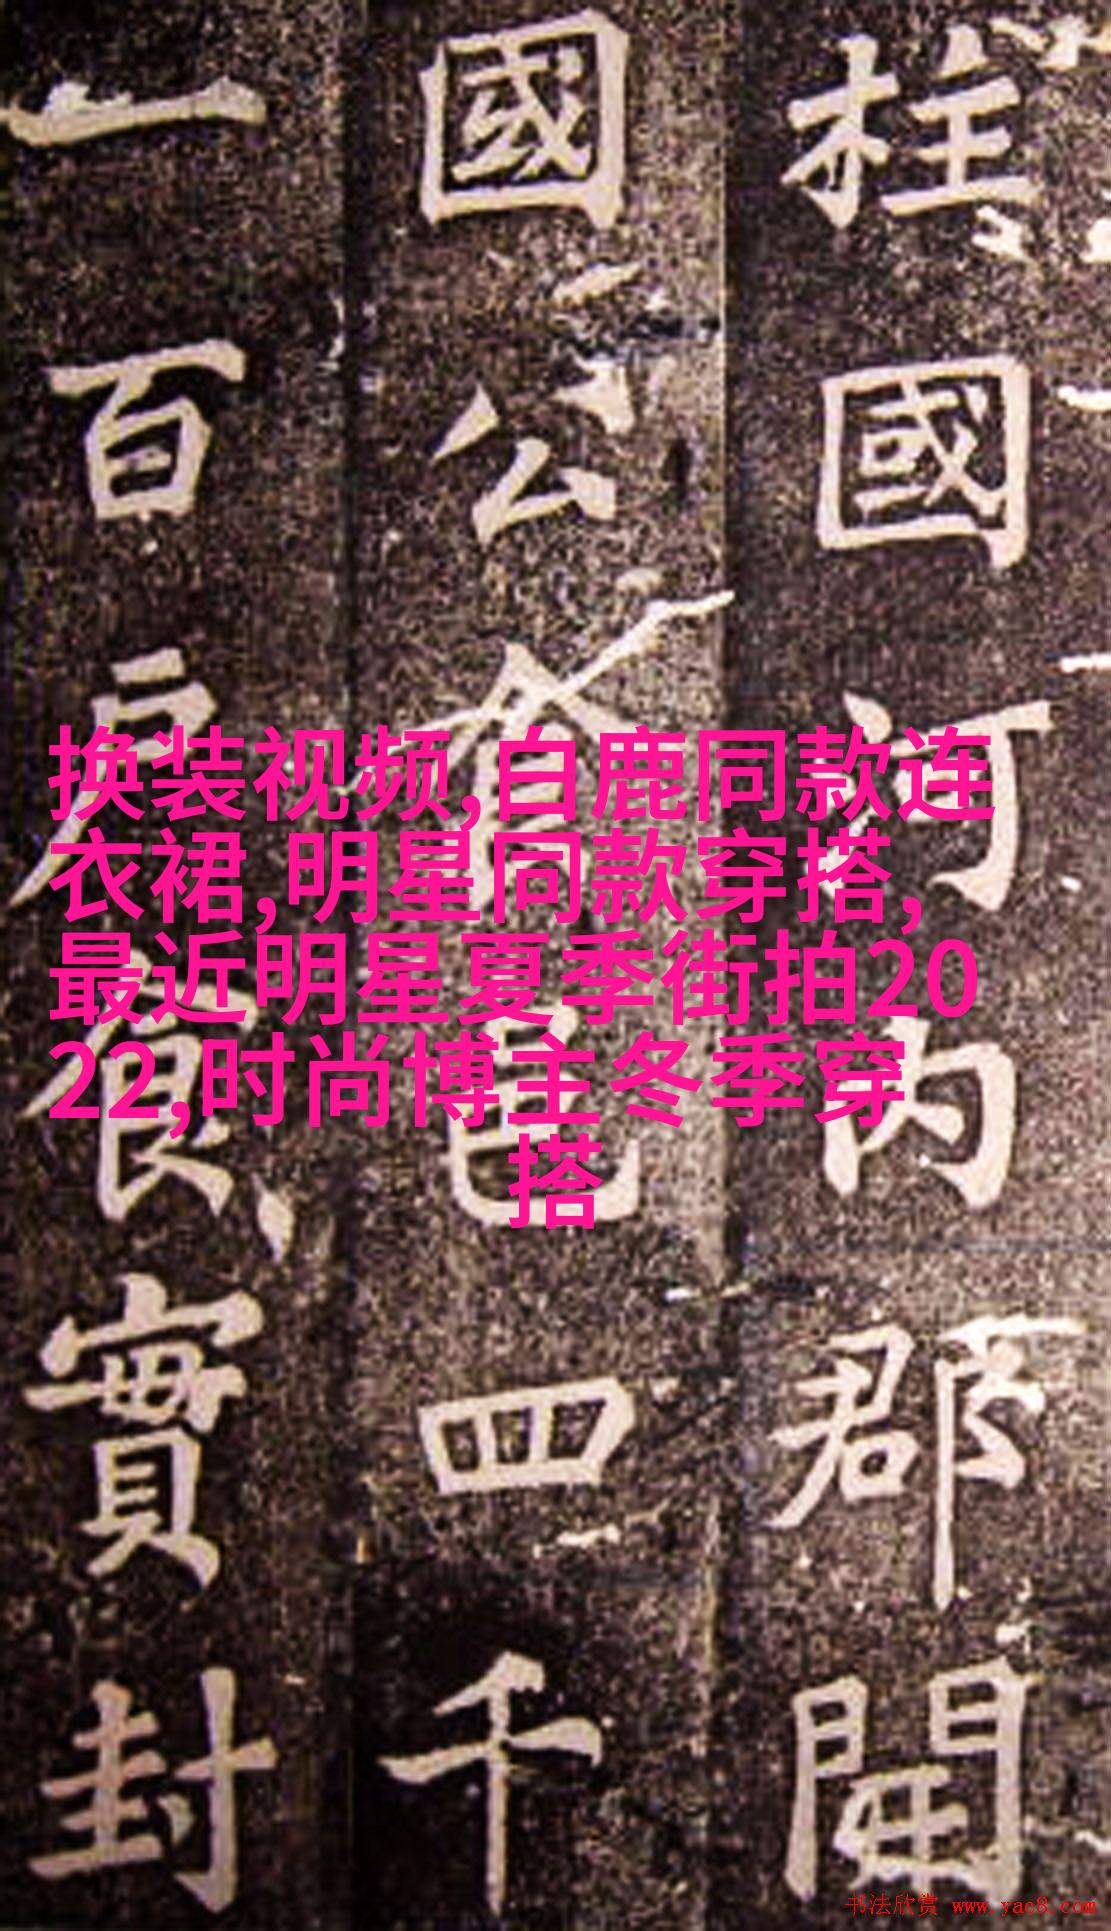 柱國河內郡開
國公食邑四千
一百戶食實封
换装视频,白鹿同款连
衣裙,明星同款穿搭,
最近明星夏季街拍20
22,时尚博主冬季穿
搭
书法欣赏 www.yac8.com